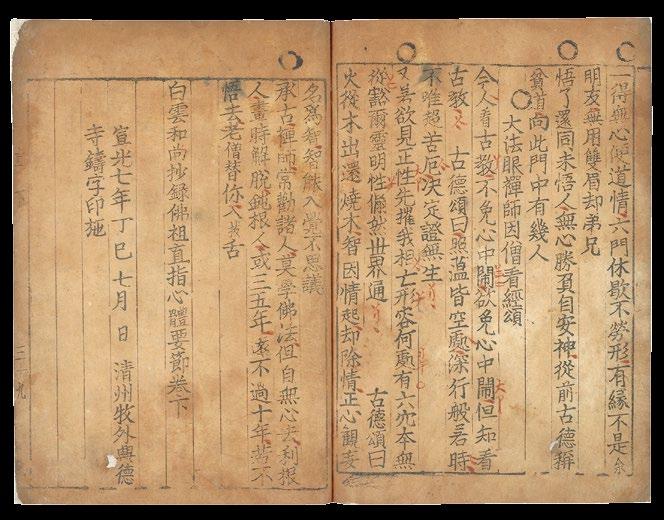 一得無心便道情六門休歇不勞形有緣不是余
朋友無用雙眉却弟兄
悟了還同未悟人無心勝負自安神從前古德稱
貧道向此門中有幾人
大法眼禪師因僧看經頌
今人看古教不免心中鬧欲免心中鬧但知看
古教 古德頌曰照蘊皆空處深行般若時
不唯超苦厄决定證無生
又若欲見正性先摧我相亡形容何處有六穴本無
從豁爾靈明性倐然世界通 古德頌曰
火從木出還燒木智因情起却除情正心觀妄
名爲智智能入覺不思議
承古禪師常勸諸人莫學佛法但自無心去利根
人晝時解脫鈍根人或三五年遠不過十年若不
悟去老僧替你入拔舌
白雲和尚抄錄佛祖直指心體要節卷下
宣光七年丁巳七月 日 清州牧外興德
寺鑄字印施